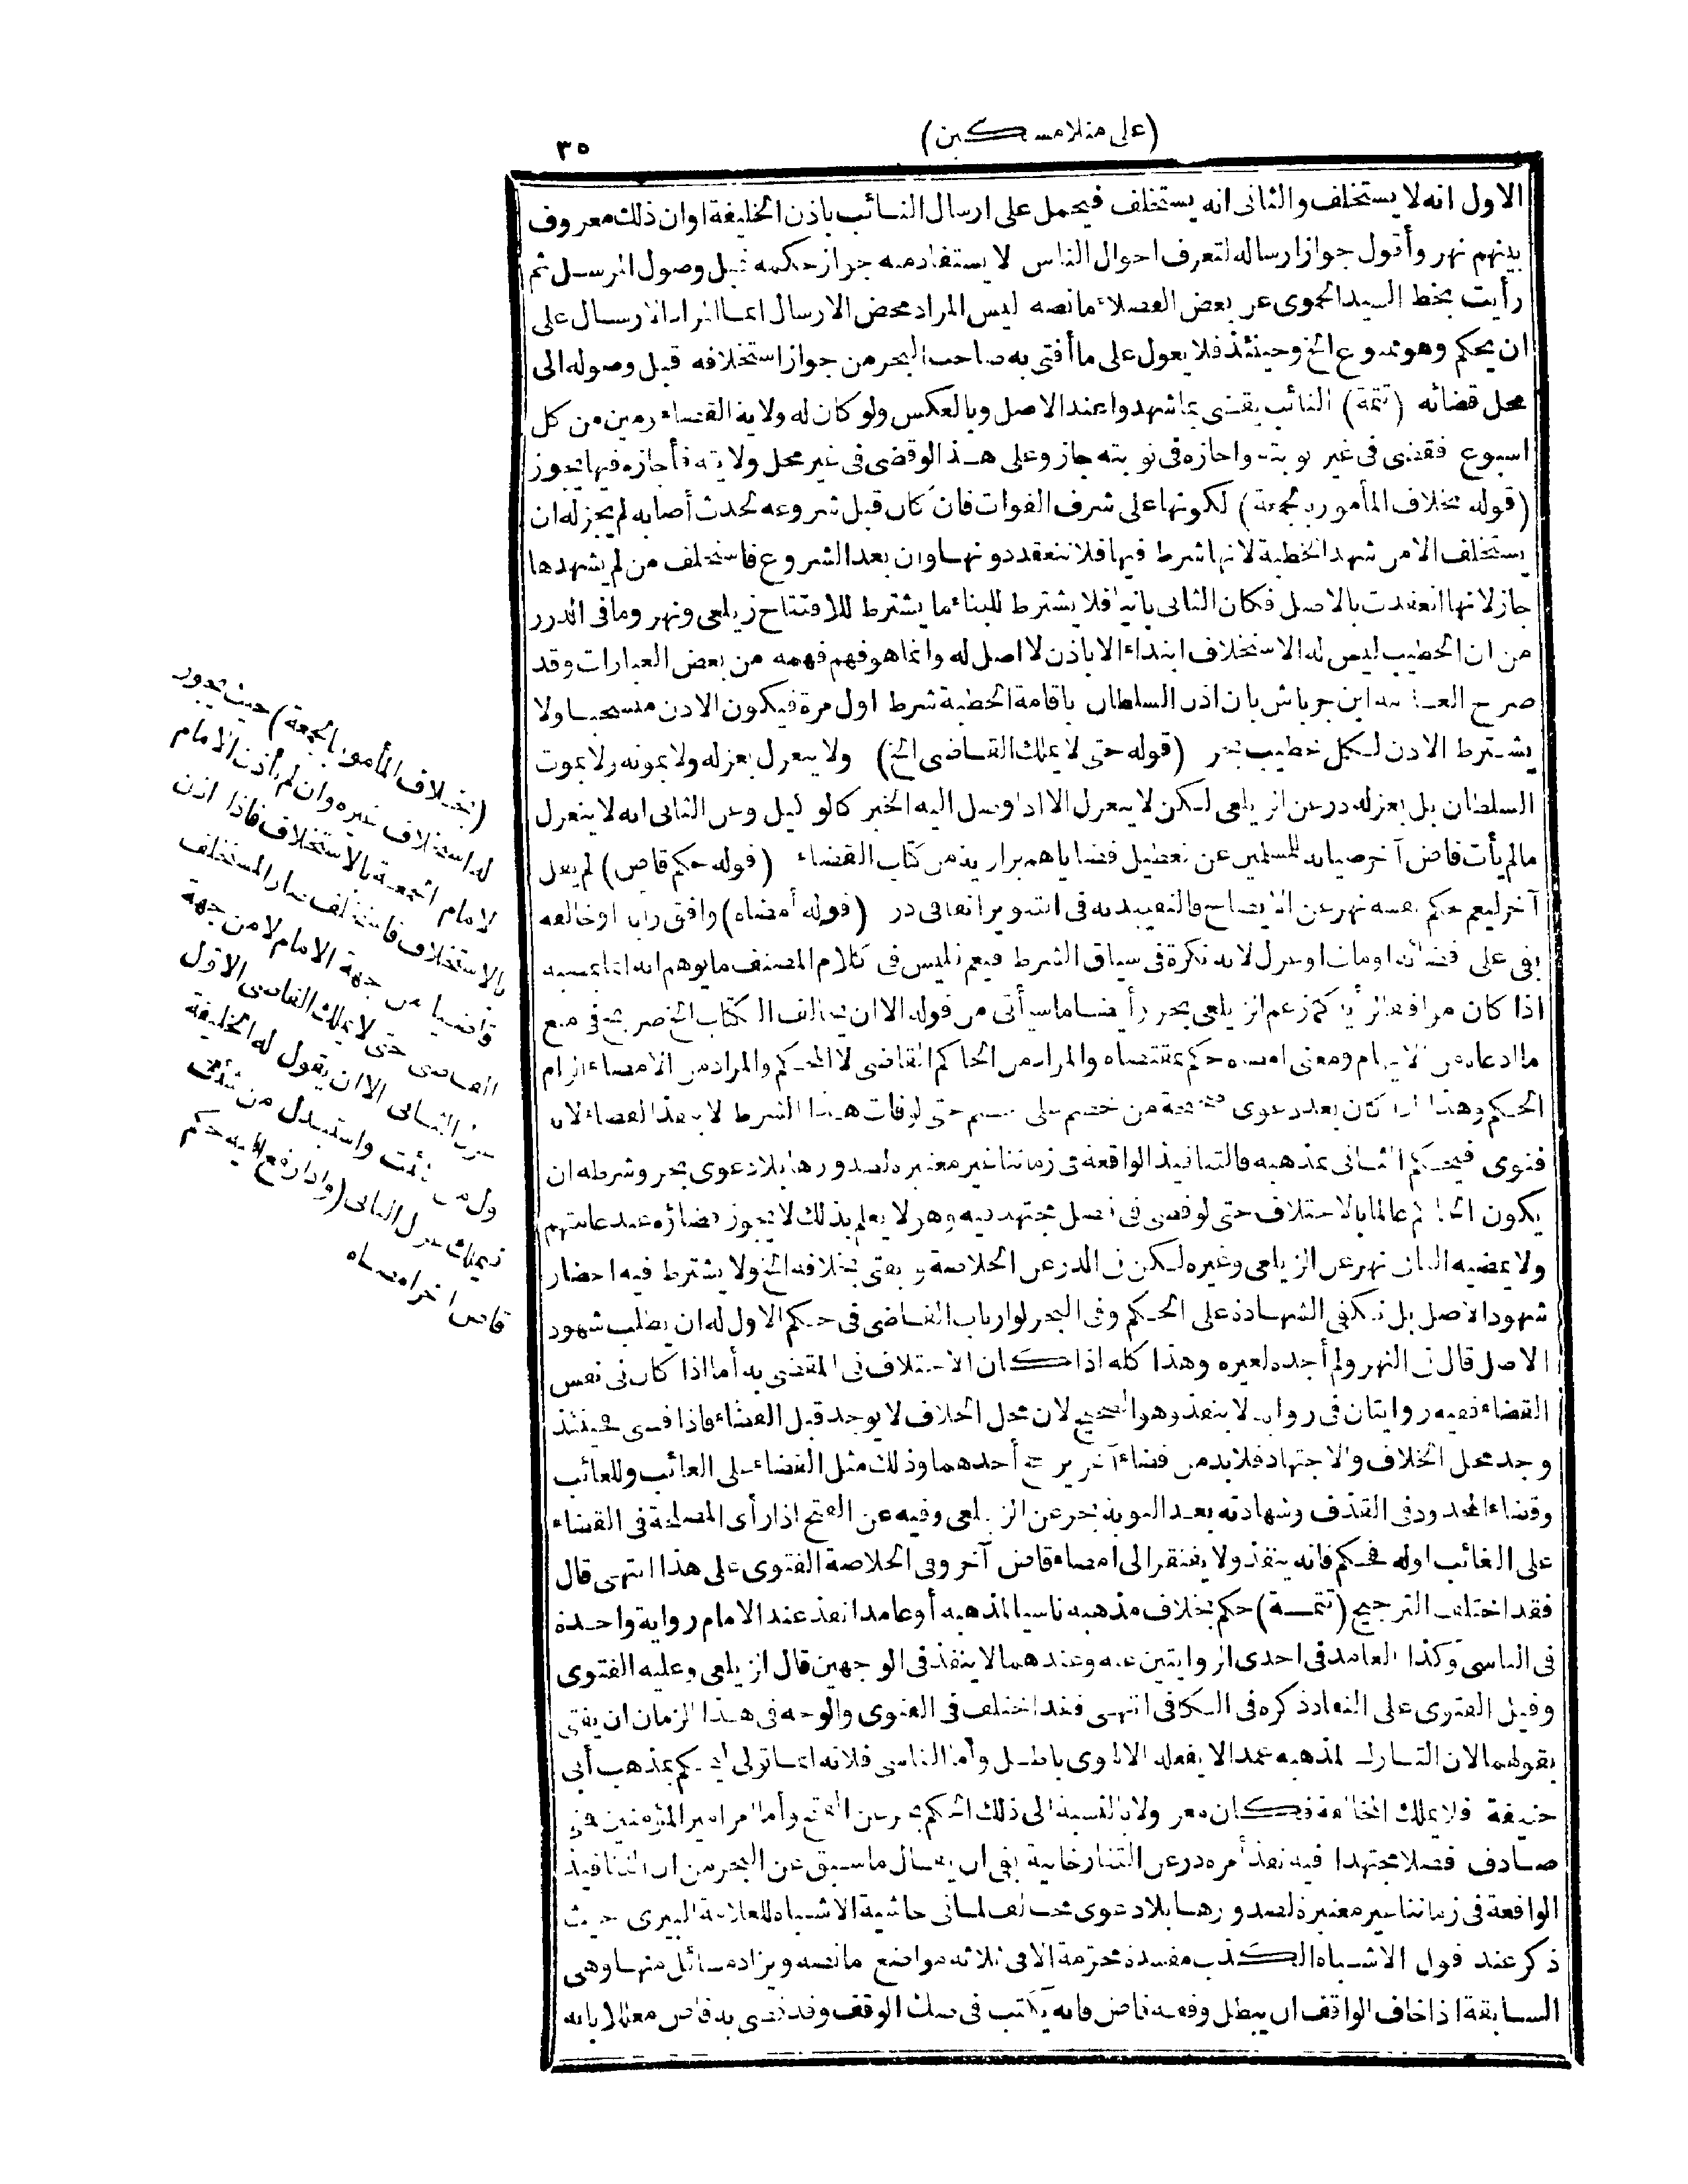 (على منلا مسكين)
٣٥
الاول انه لا يستخلف والثانى انه يستخلف فيحمل على ارسال النائب باذن الخليفة اوان ذلك معروف
بينهم نهر وأقول جواز ارساله لتعرف احوال الناس لا يستفاد منه جواز حكمه قبل وصول المرسل ثم
رأيت بخط السيد الحموى عن بعض الفضلاء ما نصه ليس المراد محض الارسال انما المراد الارسال على
ان يحكم وهو ممنوع الخ وحينئذ فلا يعول على ما أفتى به صاحب البحر من جواز استخلافه قبل وصوله الى
محل قضائه (تتمة) النائب يقضى بما شهدوا عند الاصل وبالعكس ولو كان له ولاية القضاء يومين من كل
اسبوع فقضى فى غير نوبته واجازه فى نوبته جاز وعلى هذا لو قضى فى غير محل ولايته فأجازه فيها يجوز
(قوله بخلاف المأمور بالجمعة) لكونها على شرف الفوات فان كان قبل شروعه لحدث أصابه لم يجز له ان
يستخلف الا من شهد الخطبة لانها شرط فيها فلا تنعقد دونها وان بعد الشروع فاستخلف من لم يشهدها
جاز لانها انعقدت بالاصل فكان الثانى بانيا فلا يشترط للبناء ما يشترط للافتتاح زيلعى ونهر وما فى الدرر
من ان الخطيب ليس له الاستخلاف ابتداء الا باذن لا اصل له وانما هو فهم فهمه من بعض العبارات وقد
صرح العلامة ابن جرباش بان اذن السلطان باقامة الخطبة شرط اول مرة فيكون الاذن منسحبا ولا
يشترط الاذن لكل خطيب بحر (قوله حتى لا يملك القاضى الخ) ولا ينعزل بعزله ولا بموته ولا بموت
السلطان بل بعزله در عن الزيلعى لكن لا ينعزل الا اذا وصل اليه الخبر كالوكيل وعن الثانى انه لا ينعزل
ما لم يأت قاض آخر صيانة للمسلمين عن تعطيل قضاياهم بزازية من كتاب القضاء (قوله حكم قاض) لم يقل
آخر ليعم حكم نفسه نهر عن الايضاح فالتقييد به فى التنوير اتفاقى در (قوله أمضاه) وافق رأيه او خالفه
بقى على قضائه او مات او عزل لانه نكرة فى سياق الشرط فيعم فليس فى كلام المصنف ما يوهم انه انما يمضيه
اذا كان موافقا لرأيه كما زعم الزيلعى بحر وأيضا ما سيأتى من قوله الا ان يخالف الكتاب الخ صريح فى منع
ما ادعاه من الايهام ومعنى امضاه حكم بمقتضاه والمراد من الحاكم القاضى لا المحكم والمراد من الامضاء الزام
الحكم وهذا اذا كان بعد دعوى صحيحة من خصم على خصم حتى لو فات هذا الشرط لا ينفذ القضاء لانه
فتوى فيحكم الثانى بمذهبه فالتنافيذ الواقعة فى زماننا غير معتبرة لصدورها بلا دعوى بحر وشرطه ان
يكون الحاكم عالما بالاختلاف حتى لو قضى فى فصل مجتهد فيه وهو لا يعلم بذلك لا يجوز قضاؤه عند عامتهم
ولا يمضيه الثانى نهر عن الزيلعى وغيره لكن فى الدر عن الخلاصة ويفتى بخلافه الخ ولا يشترط فيه احضار
شهود الاصل بل تكفى الشهادة على الحكم وفى البحر لو ارتاب القاضى فى حكم الاول له ان يطلب شهود
الاصل قال فى النهر ولم أجده لغيره وهذا كله اذا كان الاختلاف فى المقضى به أما اذا كان فى نفس
القضاء ففيه روايتان فى رواية لا ينفذ وهو الصحيح لان محل الخلاف لا يوجد قبل القضاء فاذا قضى فحينئذ
وجد محل الخلاف والاجتهاد فلا بد من قضاء آخر يرجح أحدهما وذلك مثل القضاء على الغائب وللغائب
وقضاء المحدود فى القذف وشهادته بعد التوبة بحر عن الزيلعى وفيه عن الفتح اذا رأى المصلحة فى القضاء
على الغائب اوله فحكم فانه ينفذ ولا يفتقر الى امضاء قاض آخر وفى الخلاصة الفتوى على هذا انتهى قال
فقد اختلف الترجيح (تتمة) حكم بخلاف مذهبه ناسيا لمذهبه أو عامدا نفذ عند الامام رواية واحدة
فى الناسى وكذا العامد فى احدى الروايتين عنه وعندهما لا ينفذ فى الوجهين قال الزيلعى وعليه الفتوى
وقيل الفتوى على النفاذ ذكره فى الكافى انتهى فقد اختلف فى الفتوى والوجه فى هذا الزمان ان يفتى
بقولهما لان التارك لمذهبه عمدا لا يفعله الا لهوى باطل وأما الناسى فلانه انما تولى ليحكم بمذهب أبى
حنيفة فلا يملك المخالفة فكان معزولا بالنسبة الى ذلك الحكم بحر عن الفتح وأما أمر امير المؤمنين فمتى
صادف فصلا مجتهدا فيه نفذ أمره در عن التتارخانية بقى ان يقال ما سبق عن البحر من ان التنافيذ
الواقعة فى زماننا غير معتبرة لصدورها بلا دعوى مخالف لما فى حاشية الاشباه للعلامة البيرى حيث
ذكر عند قول الاشباه الكذب مفسدة محرمة الا فى ثلاثة مواضع ما نصه ويزاد مسائل منها وهى
السابقة اذا خاف الواقف ان يبطل وقفه قاض فانه يكتب فى صك الوقف وقد قضى به قاض معللا بانه
(بخلاف المأمور بالجمعة) حيث يجوز
له استخلاف غيره وان لم يأذن الامام
لامام الجمعة بالاستخلاف فاذا اذن
بالاستخلاف فاستخلف صار المستخلف
قاضيا من جهة الامام لا من جهة
القاضى حتى لا يملك القاضى الاول
عزل الثانى الا ان يقول له الخليفة
ول من شئت واستبدل من شئت
فيملك عزل الثانى (واذا رفع اليه حكم
قاض) آخر امضاه